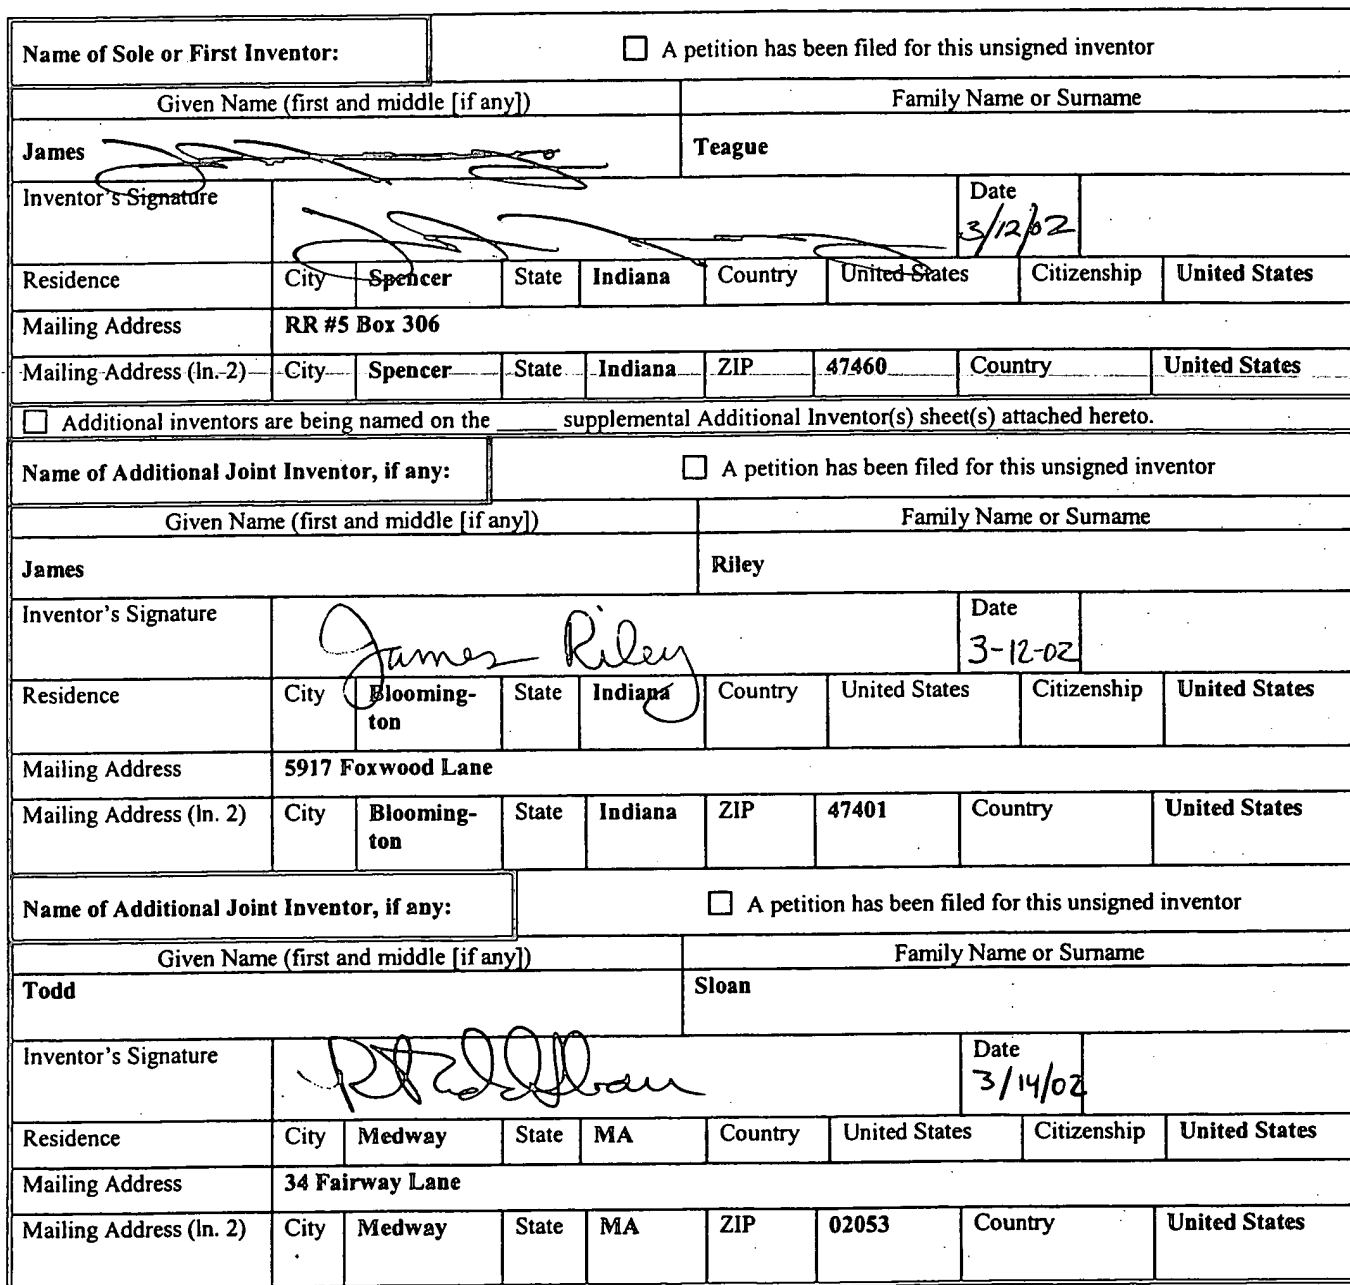 Name of Sole or First Inventor: ☐ A petition has been filed for this unsigned inventor
Given Name (first and middle [if any]) Family Name or Surname
James Teague
Inventor's Signature Date
3/12/02
Residence City Spencer State Indiana Country United States Citizenship United States
Mailing Address RR #5 Box 306
Mailing Address (ln. 2) City Spencer State Indiana ZIP 47460 Country United States
☐ Additional inventors are being named on the _____ supplemental Additional Inventor(s) sheet(s) attached hereto.
Name of Additional Joint Inventor, if any: ☐ A petition has been filed for this unsigned inventor
Given Name (first and middle [if any]) Family Name or Surname
James Riley
Inventor's Signature James Riley Date
3-12-02
Residence City Blooming- State Indiana Country United States Citizenship United States
ton
Mailing Address 5917 Foxwood Lane
Mailing Address (ln. 2) City Blooming- State Indiana ZIP 47401 Country United States
ton
Name of Additional Joint Inventor, if any: ☐ A petition has been filed for this unsigned inventor
Given Name (first and middle [if any]) Family Name or Surname
Todd Sloan
Inventor's Signature Date
3/14/02
Residence City Medway State MA Country United States Citizenship United States
Mailing Address 34 Fairway Lane
Mailing Address (ln. 2) City Medway State MA ZIP 02053 Country United States